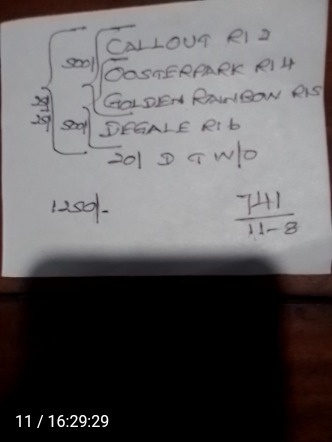 CALLOUT R1 2
500/
OOSTERPARK R1 4
GOLDEN RAINBOW R1 5
500/
DEGALE R1 6
20/ D T W/O
1250/-
741
11-8
11 / 16:29:29